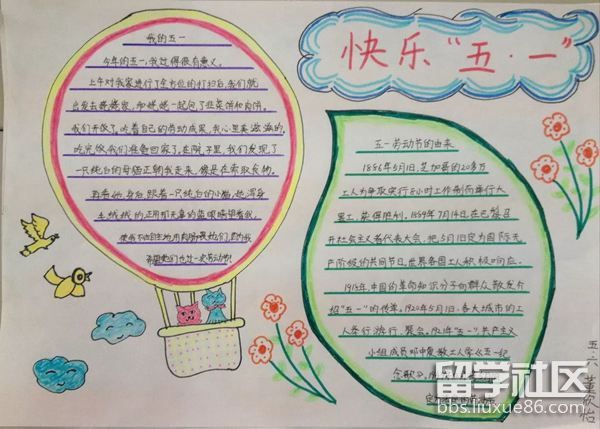 快乐“五·一”
我的五一
今年的五一,我过得很有意义。
上午对我家进行了全方位的打扫后,我们就
出发去姥姥家,和姥姥一起包了韭菜饼和肉饼。
我们开饭了,吃着自己的劳动成果,我心里美滋滋的。
吃完饭我们准备回家了,在院子里,我们发现了
一只纯白的母猫正朝我走来,像是在索取食物。
再看她身后,跟着一只纯白的小猫,他浑身
毛绒绒的,正用那

五一劳动节的由来
1886年5月1日,芝加哥的20多万
工人为争取实行8小时工作制而举行大
罢工,获得胜利。1889年7月14日,在巴黎召
开社会主义者代表大会,把5月1日定为国际无
产阶级的共同节日,世界各国工人积极响应。
1918年,中国的革命知识分子向群众散发介
绍“五一”的传单。1920年5月1日,各大城市的工
人举行游行、聚会。1921年“五一”,共产主义
小组成员邓中夏教工人学会五一纪
念歌
五、六 董欣怡
留学社区
bbs.liuxue86.com